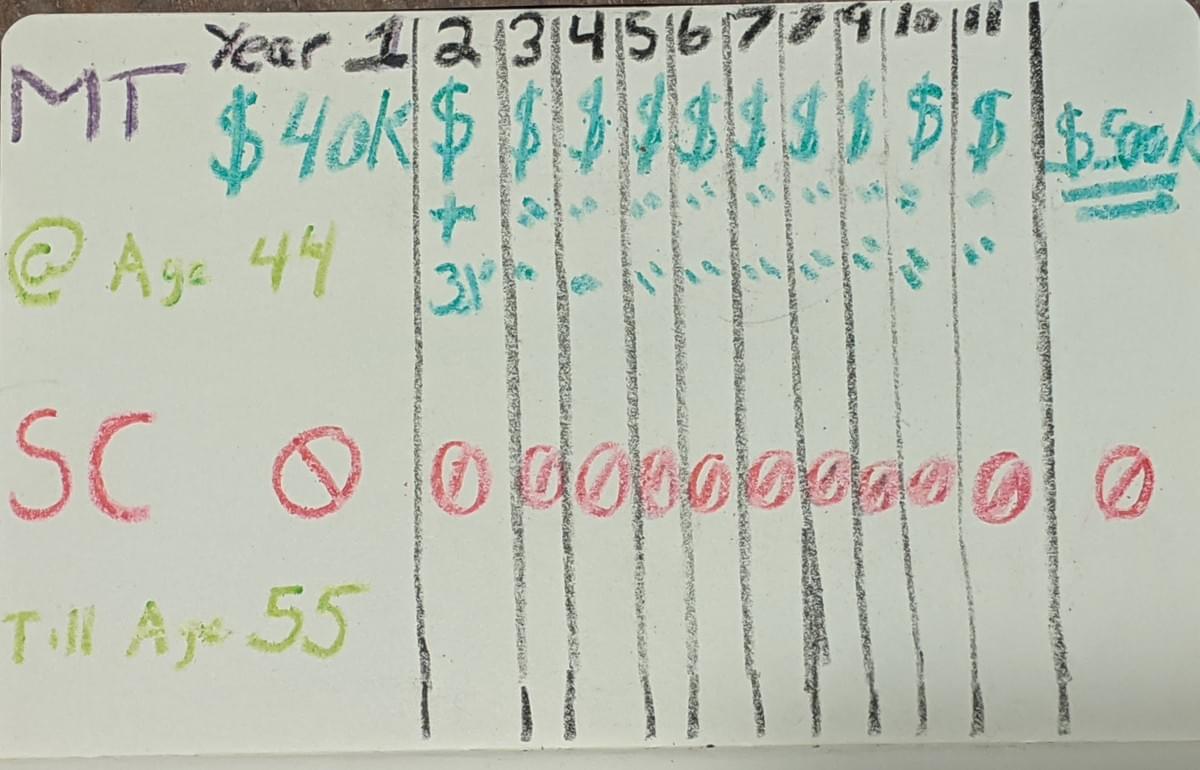 Year 1 2 3 4 5 6 7 8 9 10 11
MT $40k $ $ $ $ $ $ $ $ $ $ $500k
+ " " " " " " " " "
@ Age 44 " " " " " " " " "
SC
Till Age 55